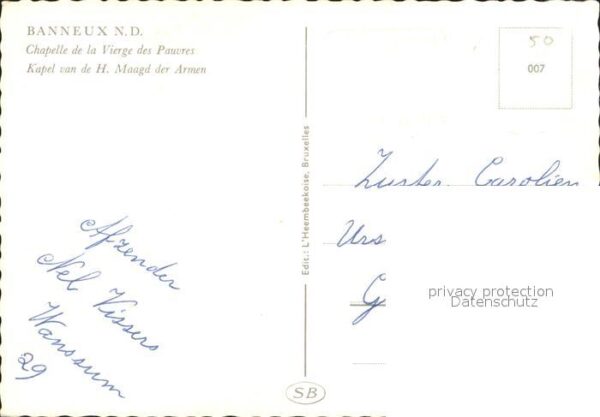 BANNEUX N.D.
Chapelle de la Vierge des Pauvres
Kapel van de H. Maagd der Armen
Afzender
Nel Vissers
Wanssum
29
Edit.: L'Heembeekoise, Bruxelles
SB
50
007
Zuster Carolien
Urs
G
privacy protection
Datenschutz